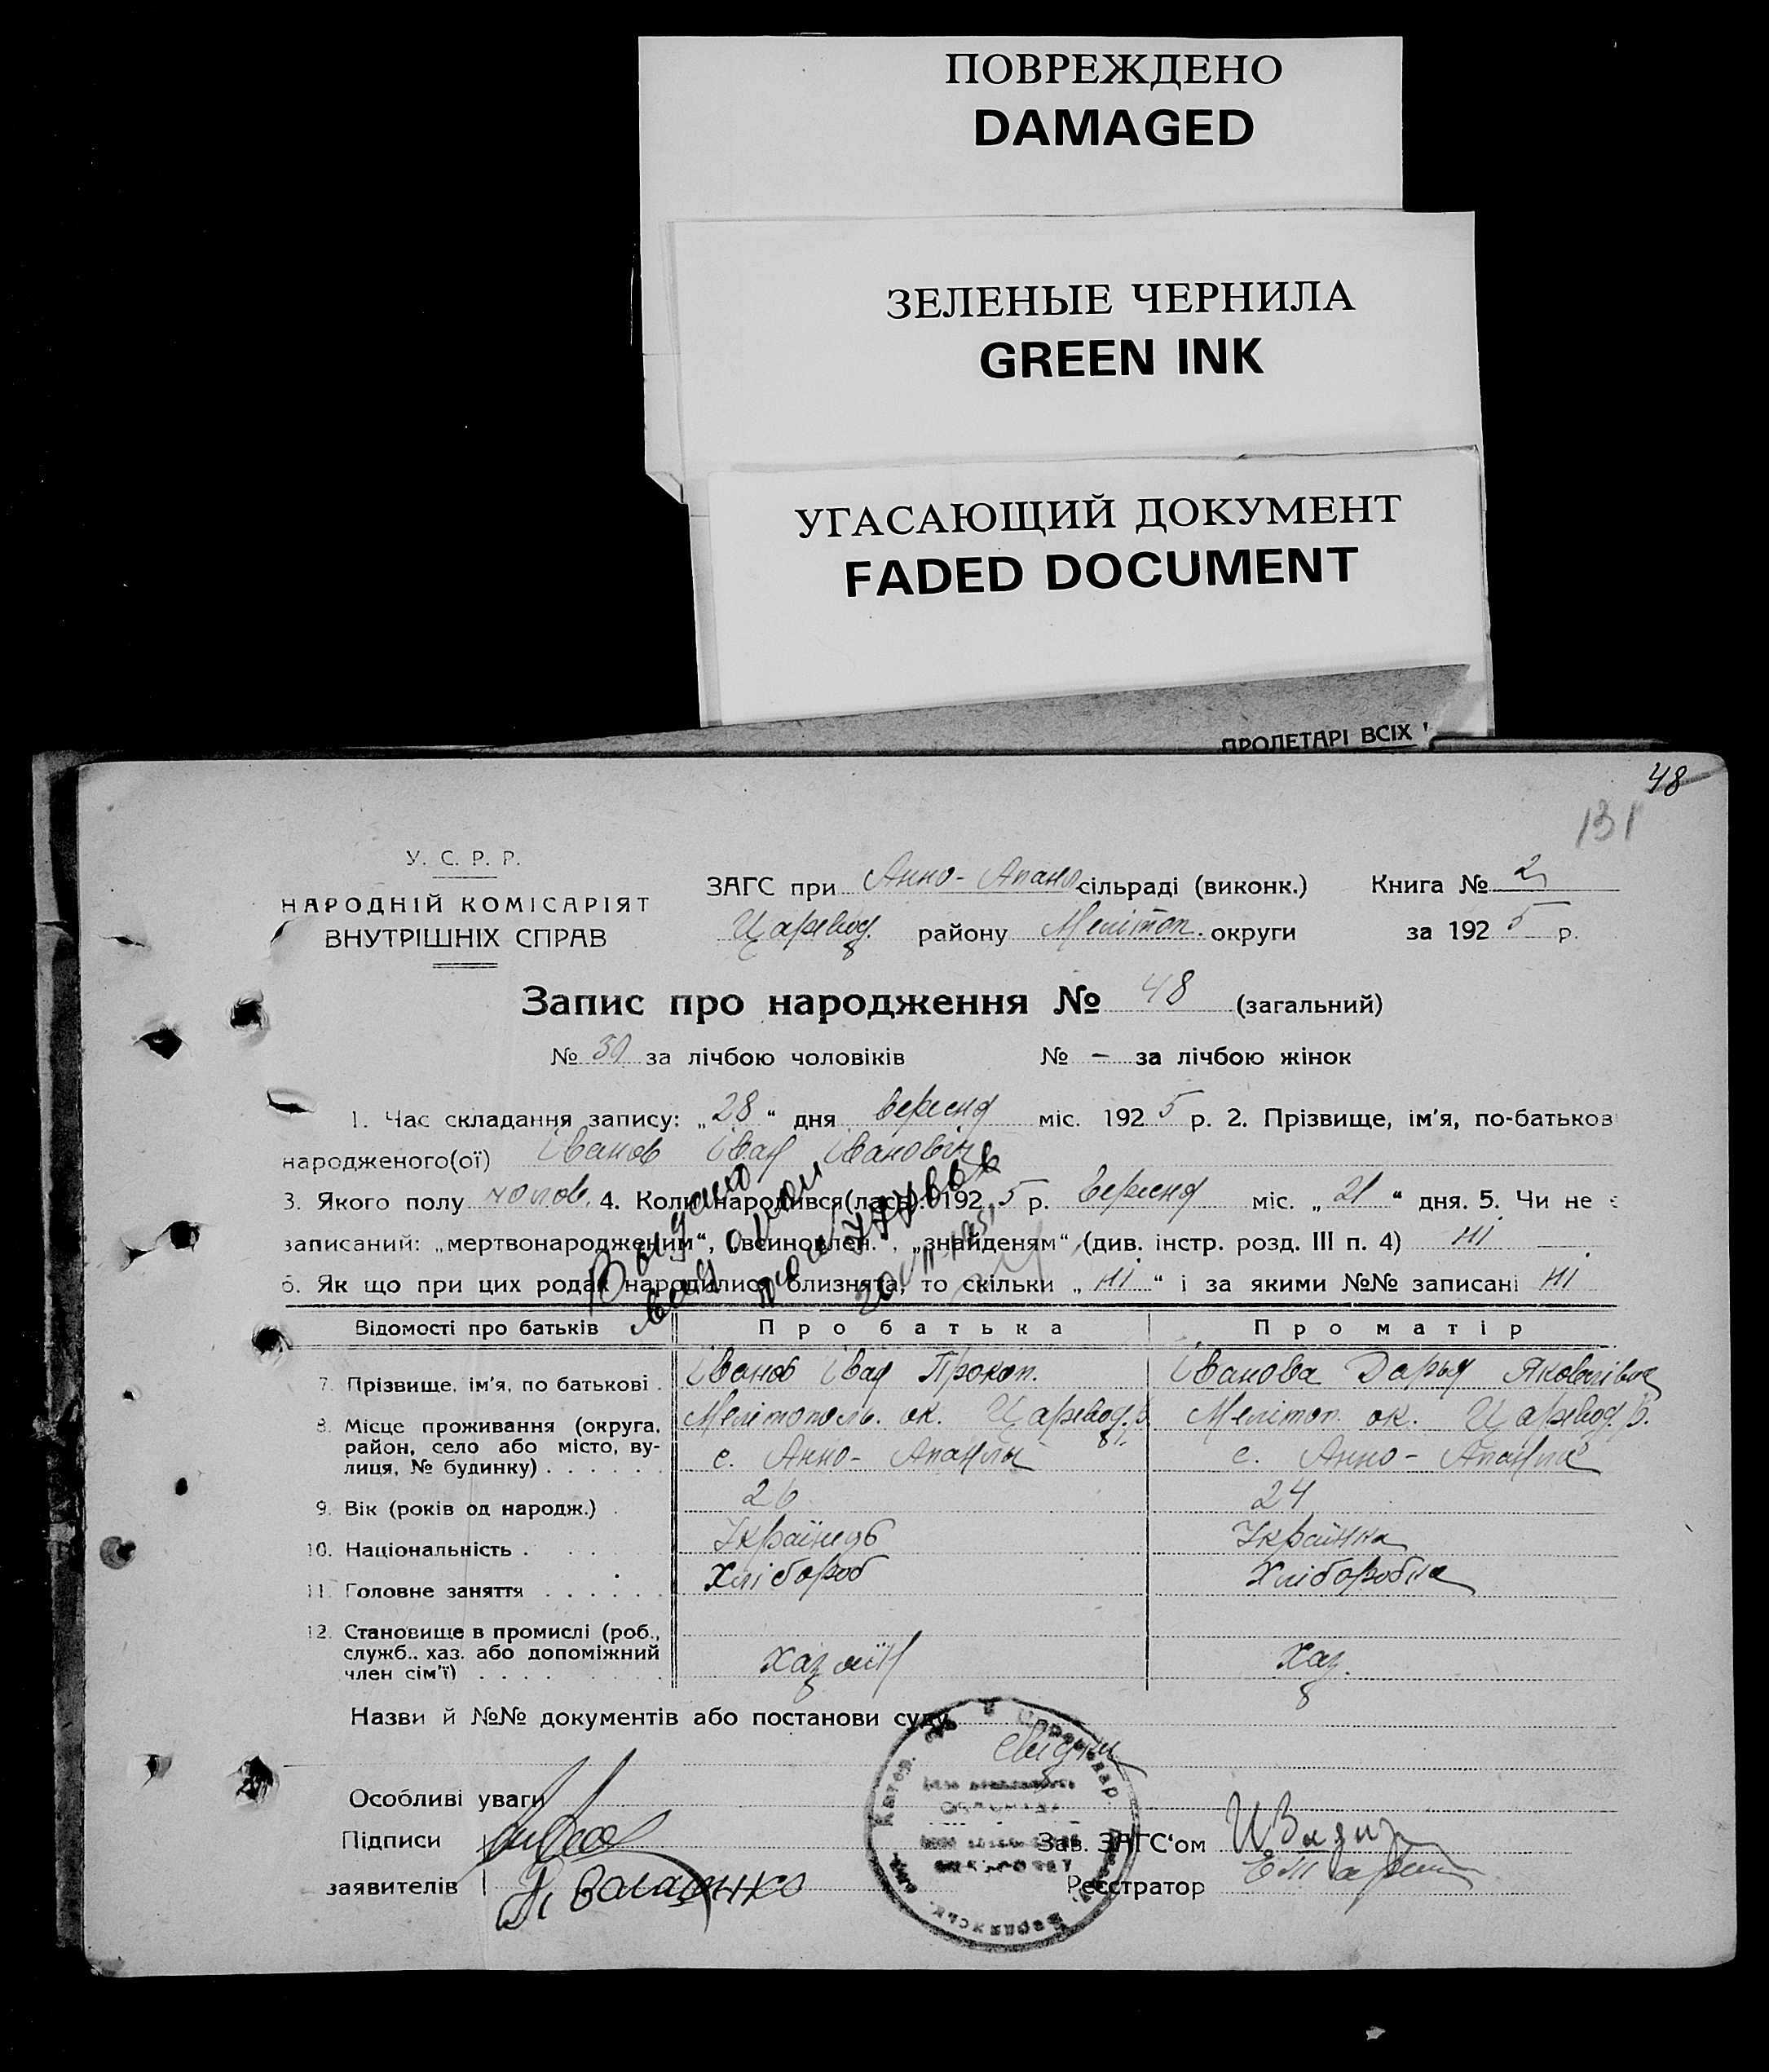 ПОВРЕЖДЕНО
DAMAGED
ЗЕЛЕНЫЕ ЧЕРНИЛА
GREEN INK
УГАСАЮЩИЙ ДОКУМЕНТ
FADED DOCUMENT
ПРОЛЕТАРІ ВСІХ
48
131
У. С. Р. Р.
НАРОДНІЙ КОМІСАРІЯТ
ВНУТРІШНІХ СПРАВ
ЗАГС при Анно-Апанл сільраді (виконк.) Книга № 2
Царевод. району Мелітоп. округи за 1925 р.
Запис про народження № 48 (загальний)
№ 30 за лічбою чоловіків № – за лічбою жінок
1. Час складання запису: „28“ дня вересня міс. 1925 р. 2. Прізвище, ім'я, по-батьков
народженого(ої) Іванов Іван Іванович
3. Якого полу чолов. 4. Коли народився(лась): 1925 р. вересня міс. „21“ дня. 5. Чи не є
записаний: „мертвонародженим“, „всиновлен.“, „знайденям“ (див. інстр. розд. III п. 4) ні
6. Як що при цих родах народилися близнята, то скільки „ні“ і за якими №№ записані ні
Выдано
Відомості про батьків Про батька Про матір
7. Прізвище, ім'я, по батькові . Іванов Іван Прокоп. Іванова Дарья Яковлівна
8. Місце проживання (округа, район, село або місто, вулиця, № будинку) . . . . . . Мелітополь. ок. Царевод. р. с. Анно-Апанлы Мелітоп. ок. Царевод. р. с. Анно-Апанла
9. Вік (років од народж.) . 26 24
10. Національність . . . Українець Українка
11. Головне заняття . . . . . . Хлібороб Хліборобка
12. Становище в промислі (роб., служб.. хаз. або допоміжний член сім'ї) . . . . Хазяїн Хаз.
Назви й №№ документів або постанови суду
Особливі уваги
Підписи
заявителів
Зав. ЗАГС'ом
Реєстратор